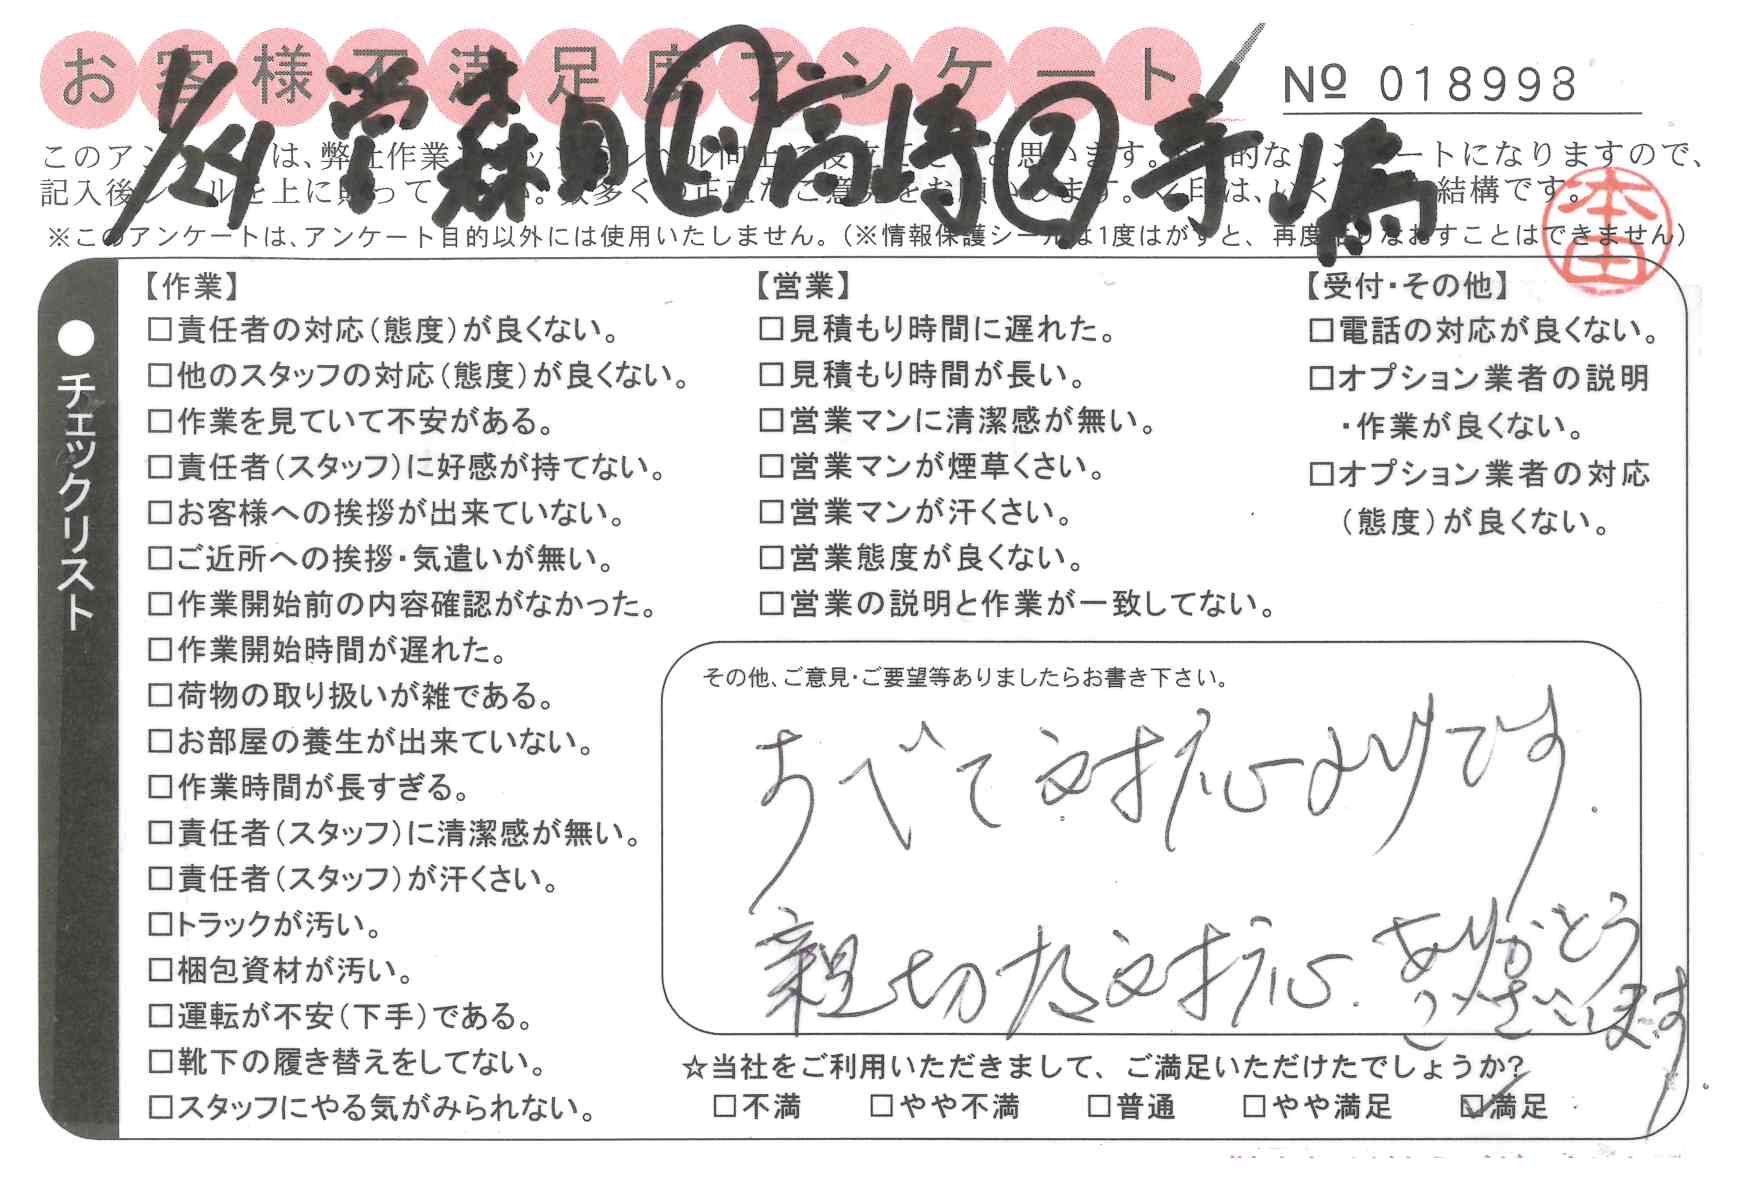 お客様不満足度アンケート
№ 018998
1/24 常 森見 高崎 寺嶋
このアンケートは、弊社作業スタッフのレベル向上に役立てたいと思います。
記入後シールを上に貼って
結構です。
※このアンケートは、アンケート目的以外には使用いたしません。（※情報保護シールは1度はがすと、再度貼りなおすことはできません）
本田
●チェックリスト
【作業】
□責任者の対応（態度）が良くない。
□他のスタッフの対応（態度）が良くない。
□作業を見ていて不安がある。
□責任者（スタッフ）に好感が持てない。
□お客様への挨拶が出来ていない。
□ご近所への挨拶・気遣いが無い。
□作業開始前の内容確認がなかった。
□作業開始時間が遅れた。
□荷物の取り扱いが雑である。
□お部屋の養生が出来ていない。
□作業時間が長すぎる。
□責任者（スタッフ）に清潔感が無い。
□責任者（スタッフ）が汗くさい。
□トラックが汚い。
□梱包資材が汚い。
□運転が不安（下手）である。
□靴下の履き替えをしてない。
□スタッフにやる気がみられない。
【営業】
□見積もり時間に遅れた。
□見積もり時間が長い。
□営業マンに清潔感が無い。
□営業マンが煙草くさい。
□営業マンが汗くさい。
□営業態度が良くない。
□営業の説明と作業が一致してない。
【受付・その他】
□電話の対応が良くない。
□オプション業者の説明
・作業が良くない。
□オプション業者の対応
（態度）が良くない。
その他、ご意見・ご要望等ありましたらお書き下さい。
すべて対応よいです.
親切な対応. ありがとう
ございます
☆当社をご利用いただきまして、ご満足いただけたでしょうか?
□不満 □やや不満 □普通 □やや満足 ☑満足